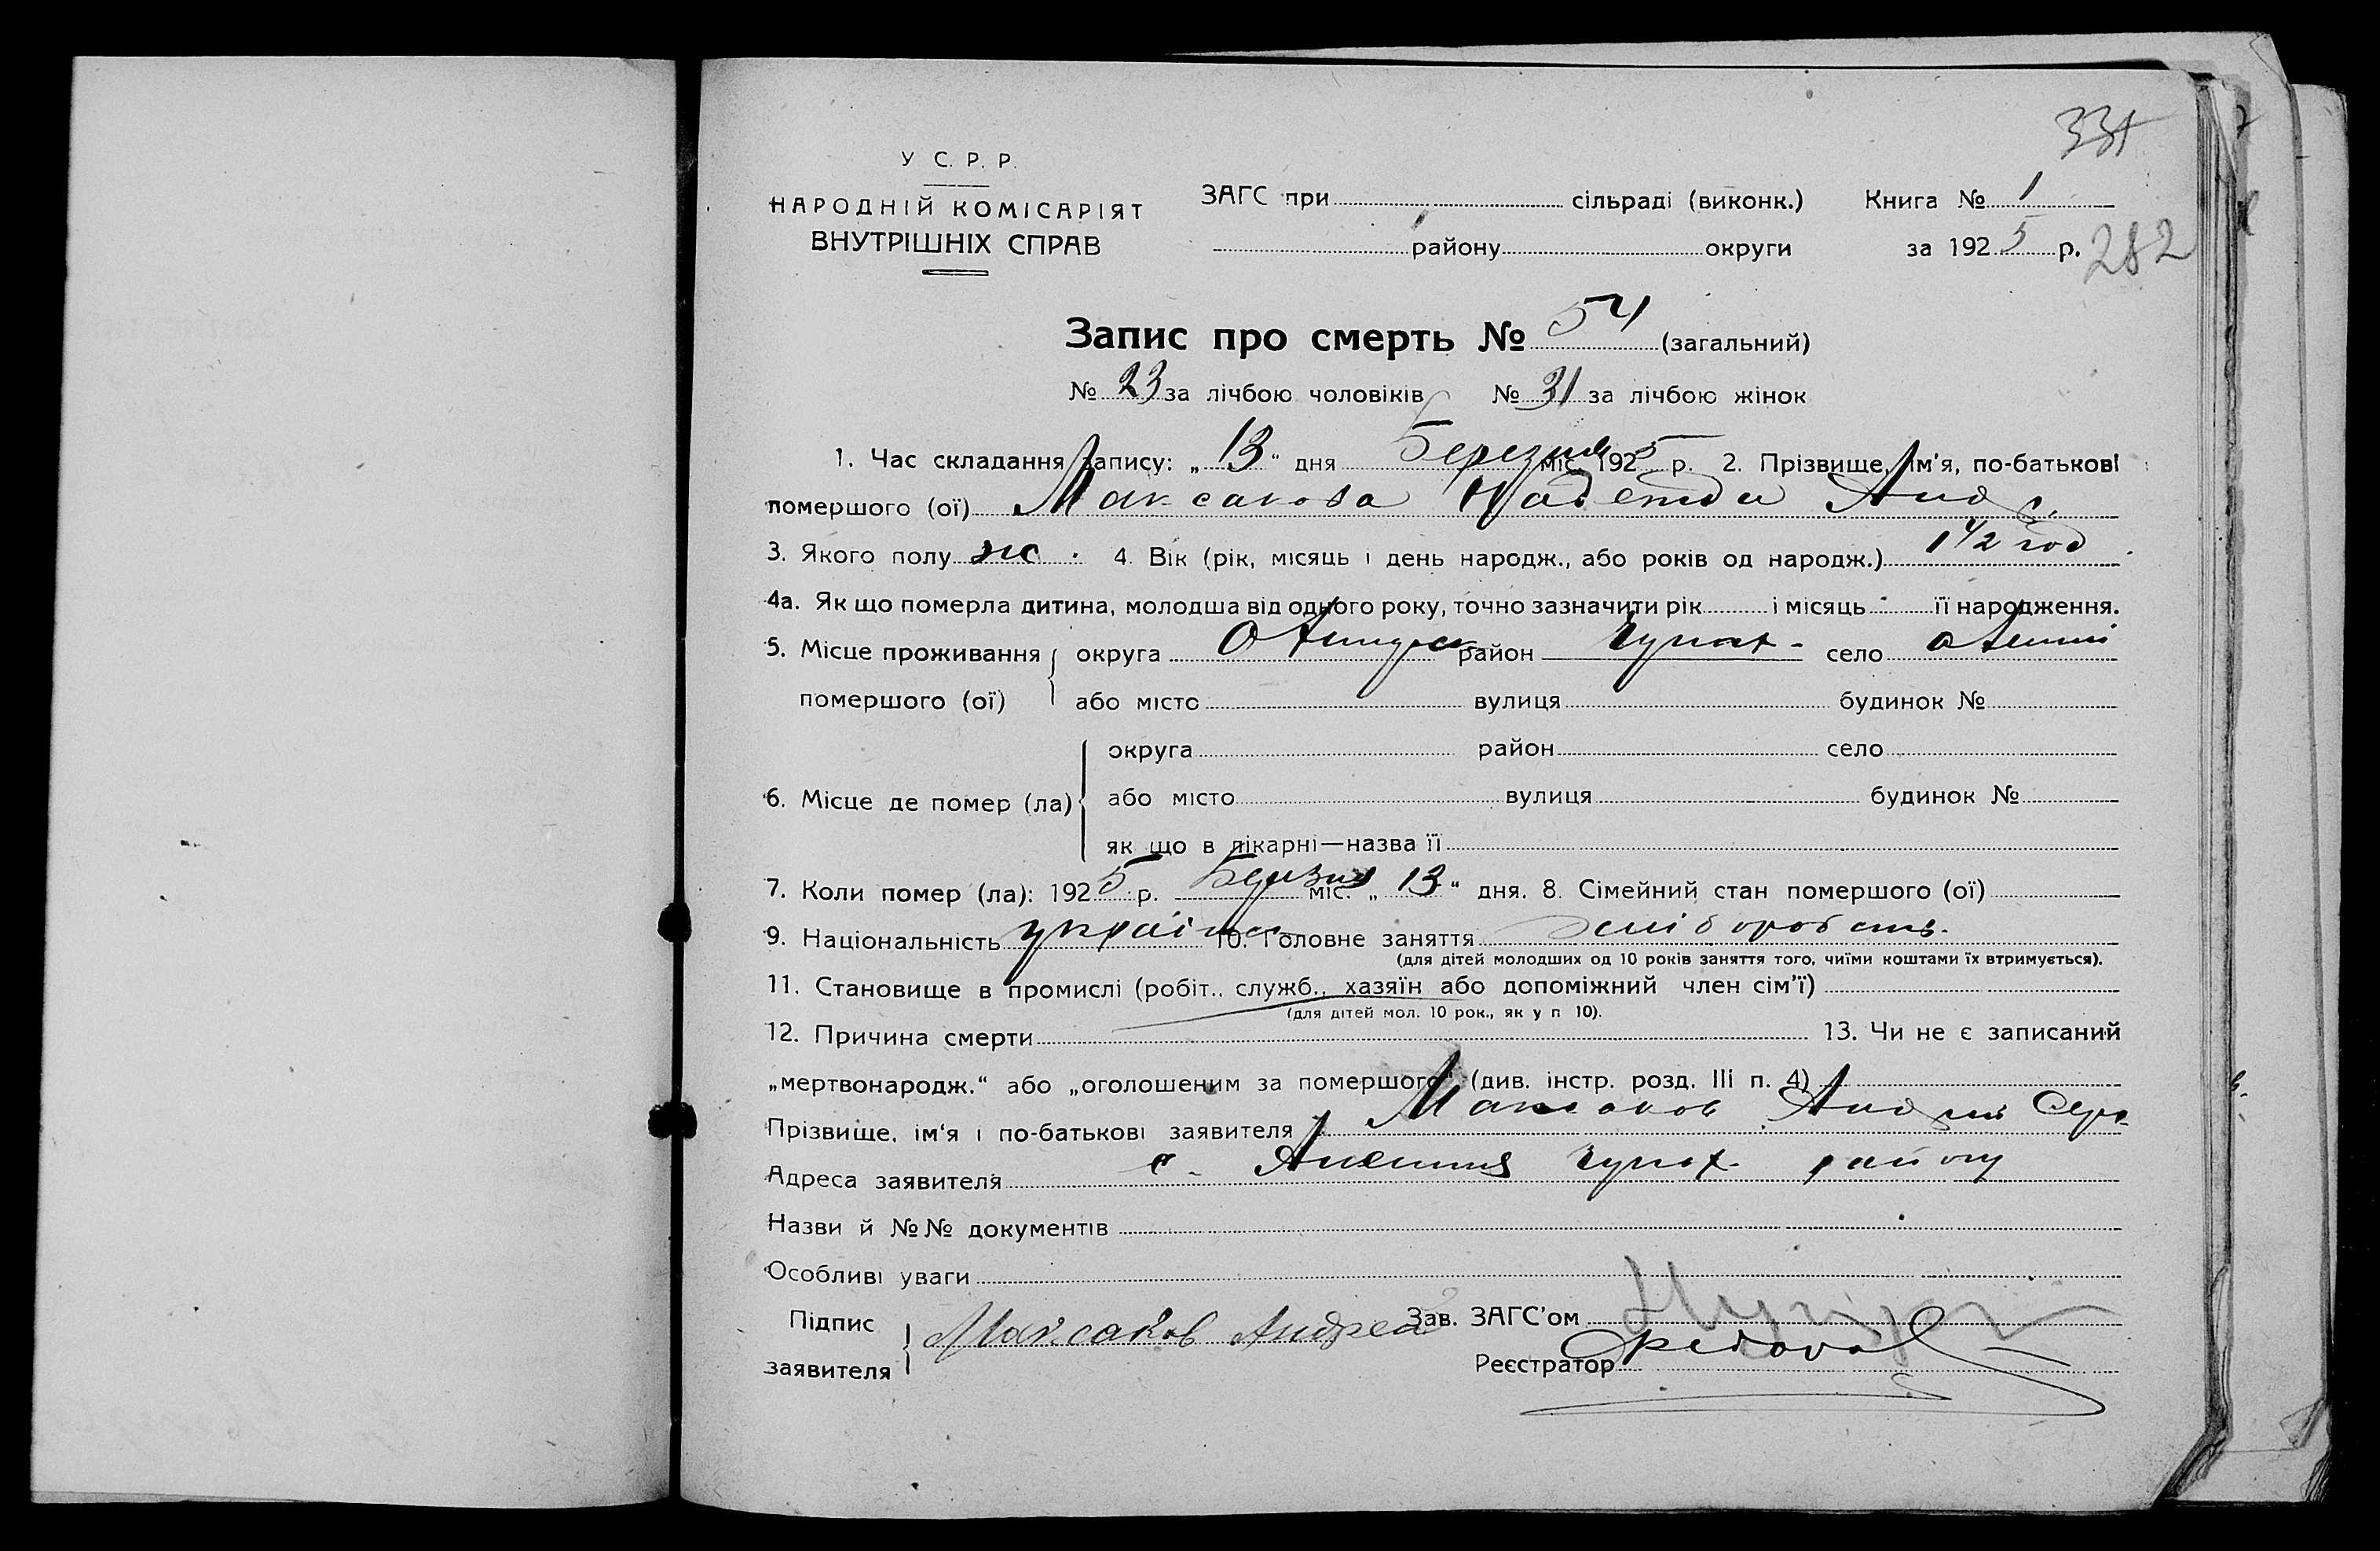 331
У С. Р. Р.
НАРОДНІЙ КОМІСАРІЯТ
ВНУТРІШНІХ СПРАВ
ЗАГС при сільраді (виконк.) Книга № 1
району округи за 1925 р. 282
Запис про смерть № 54 (загальний)
№ 23 за лічбою чоловіків № 31 за лічбою жінок
1. Час складання запису: „13“ дня Березня міс. 1925 р. 2. Прізвище, ім'я, по-батькові
помершого (ої) Максакова Надежда Анд
3. Якого полу ж. 4. Вік (рік, місяць і день народж., або років од народж.) 1 1/2 год
4а. Як що померла дитина, молодша від одного року, точно зазначити рік і місяць її народження.
5. Місце проживання округа район Чупах. село
помершого (ої) або місто вулиця будинок №
округа район село
6. Місце де помер (ла) або місто вулиця будинок №
як що в лікарні—назва її
7. Коли помер (ла): 1925 р. Березня міс. „13“ дня. 8. Сімейний стан помершого (ої)
9. Національність 10. Головне заняття
(для дітей молодших од 10 років заняття того, чиїми коштами їх втримується).
11. Становище в промислі (робіт., служб., хазяїн або допоміжний член сім'ї)
(для дітей мол. 10 рок., як у п 10).
12. Причина смерти 13. Чи не є записаний
„мертвонародж.“ або „оголошеним за помершого“ (див. інстр. розд. III п. 4)
Прізвище, ім'я і по-батькові заявителя Максаков Андрій
Адреса заявителя с. Чупах. району
Назви й №№ документів
Особливі уваги
Підпис
заявителя Максаков Андрей
Зав. ЗАГС'ом
Реєстратор